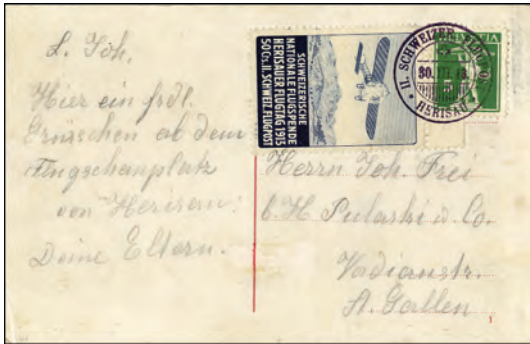 L. Joh.
Hier ein frdl.
Grüsschen ab dem
Flugschauplatz
von Herisau!
Deine Eltern.
SCHWEIZERISCHE
NATIONALE FLUGSPENDE
HERISAUER FLUGTAG 1913
50 Cts. II. SCHWEIZ. FLUGPOST
II. SCHWEIZER.
30. III. 13.
HERISAU
Herrn Joh. Frei
b. H. Pulaski & Co.
Vadianstr.
St. Gallen
1